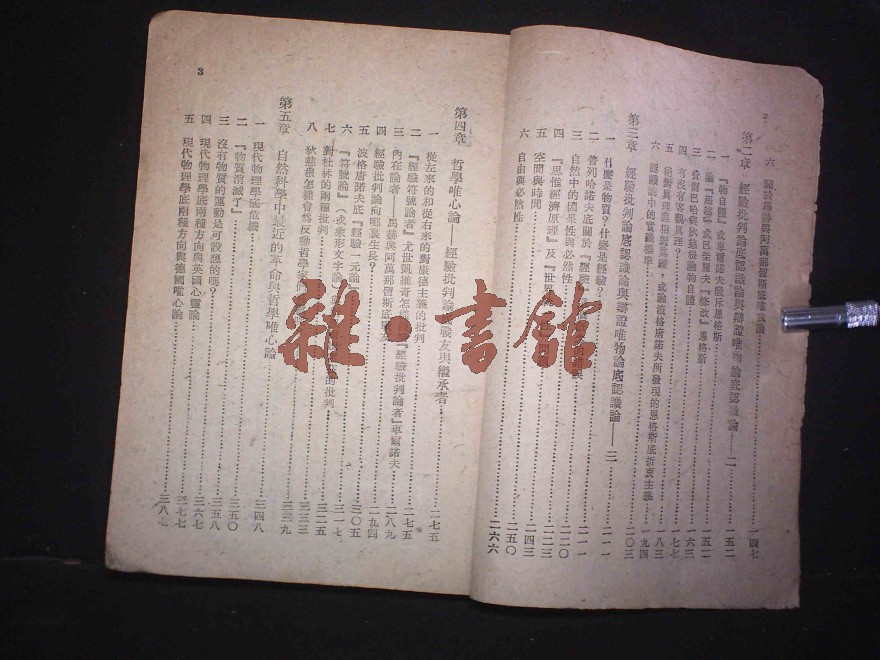 2
六 關於馬赫與阿萬那留斯底唯我論……一四七
第二章 經驗批判論底認識論與辯證唯物論底認識論——二……一五二
一 『物自體』或車爾諾夫駁斥恩格斯……一五二
二 論『超越』或巴柴羅夫『修改』恩格斯……一六三
三 費爾巴哈與狄慈根論物自體……一七七
四 有沒有客觀真理?……一八三
五 絕對真理與相對真理，或論波格唐諾夫所發現的恩格斯底折衷主義……一九四
六 認識論中的實踐標準……二〇三
第三章 經驗批判論底認識論與辯證唯物論底認識論——三……二一一
一 什麼是物質?什麼是經驗?……二一一
二 普列哈諾夫底關於『經驗……二二〇
三 自然中的因果性與必然性……二二三
四 『思惟經濟原理』及『世界……二四三
五 空間與時間……二五〇
六 自由與必然性……二六六
第四章 哲學唯心論——經驗批判論底戰友與繼承者……二七五
一 從左來的和從右來的對康德主義的批判……二七五
二 『經驗符號論者』尤世凱維奇怎樣『經驗批判論者』車爾諾夫……二八九
三 內在論者——馬赫與阿萬那留斯底戰友……二九四
四 經驗批判論向哪裏生長?……三〇五
五 波格唐諾夫底『經驗一元論』……三一七
六 『符號論』(或象形文字論)與……的批判……三二五
七 對杜林的兩種批判……三三二
八 狄慈根怎樣會為反動哲學家……三三九
第五章 自然科學中最近的革命與哲學唯心論……三四八
一 現代物理學底危機……三五〇
二 『物質消滅了』……三五八
三 沒有物質的運動是可設想的嗎?……三六七
四 現代物理學底兩種方向與英國心靈論……三七七
五 現代物理學底兩種方向與德國唯心論……三八七
3
雜書館